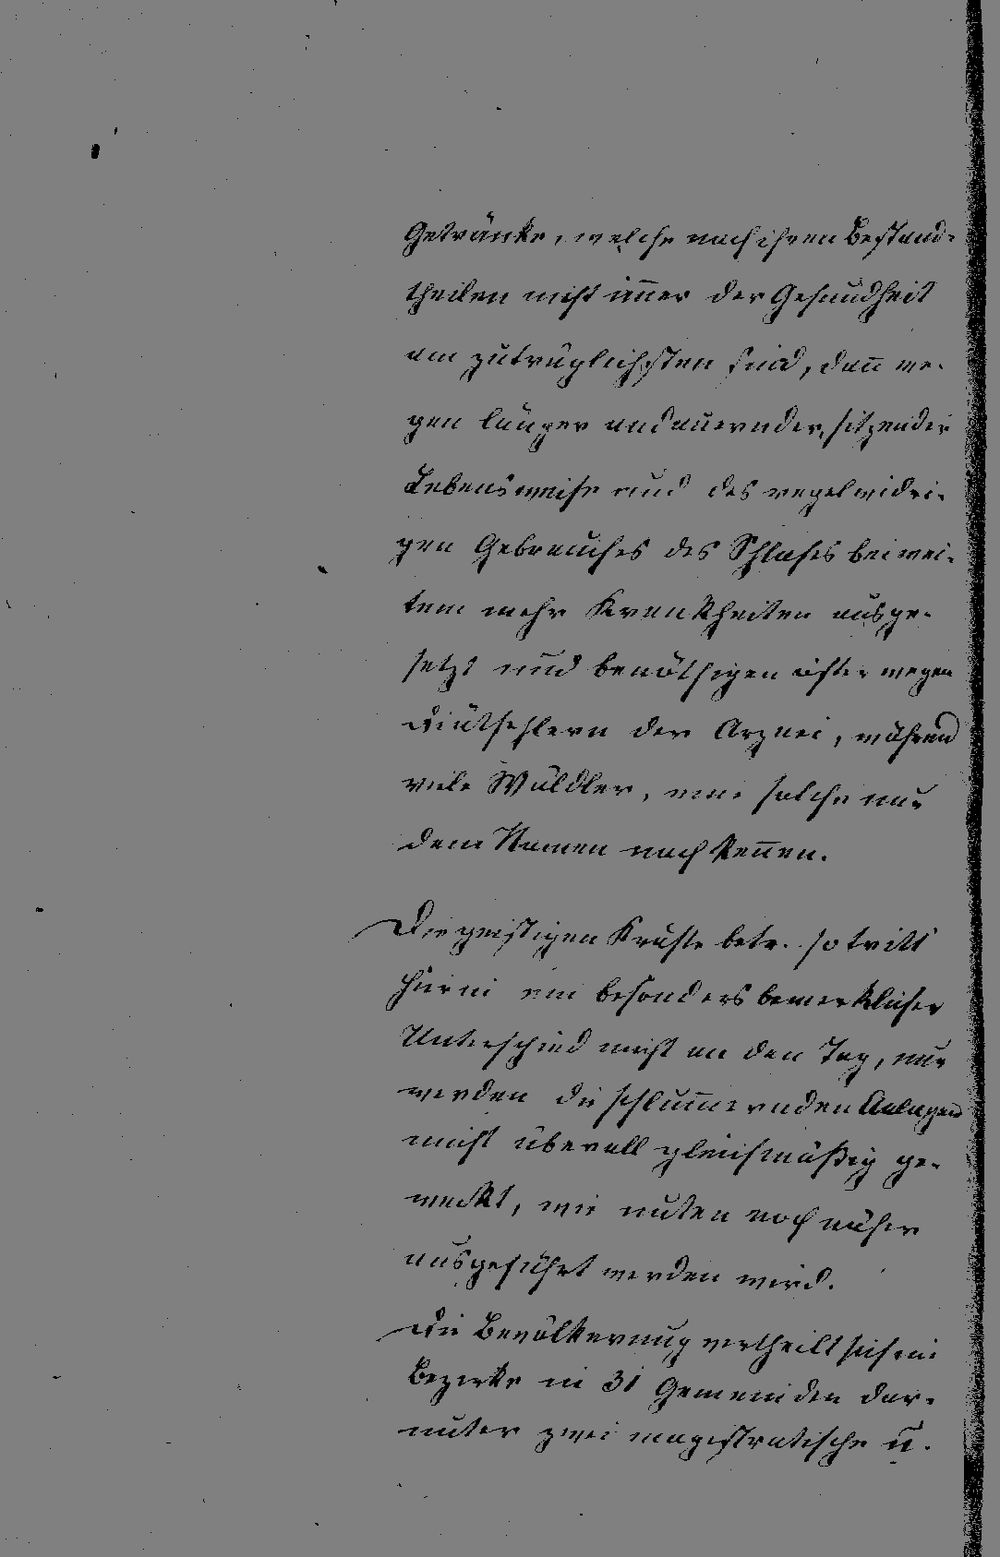 Getränke, welche nach ihren Bestand-
theilen nicht im̄er der Gesundheit
am zuträglichsten sind, dan̄ we-
gen länger andauernder, sitzender
Lebensweise und des regelwidri-
gen Gebrauches des Schlafes bei wei-
tem mehr Krankheiten ausge-
setzt und benöthigen öfter wegen
Diätfehlern der Arznei, während
viele Wäldler, eine solche nur
dem Namen nach ken̄en.
Die geistigen Kräfte betr. so tritt
hierin ein besonders bemerklicher
Unterschied nicht an den Tag, nur
werden die schlum̄ernden Anlagen
nicht überall gleichmäßig ge-
weckt, wie unten noch näher
ausgeführt werden wird.
Die Bevölkerung vertheilt sich im
Bezirke in 31 Gemeinden dar-
unter zwei magistratische u.